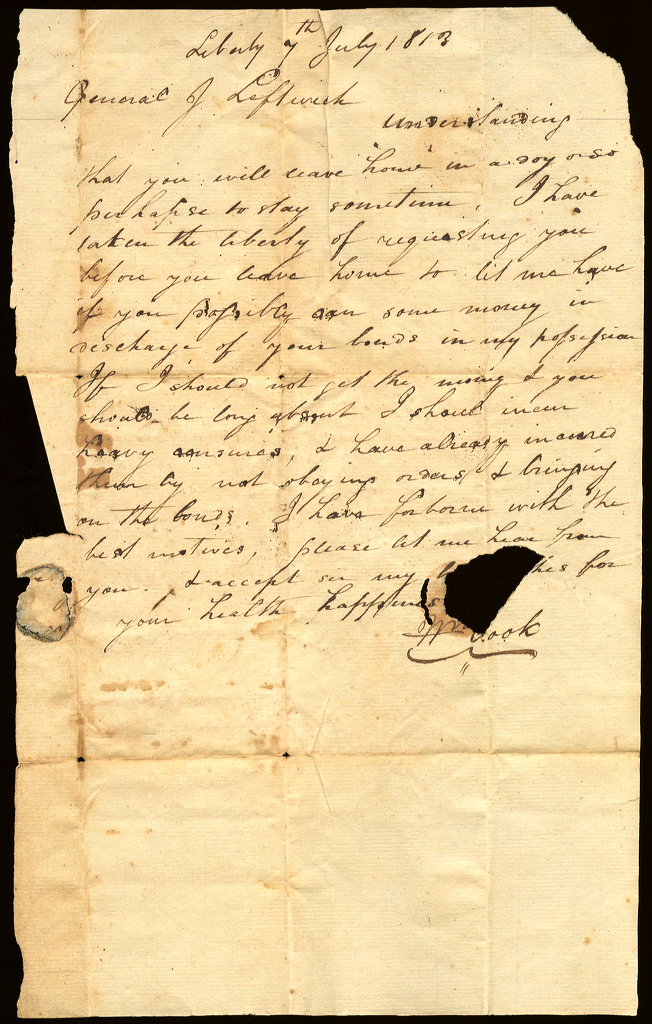 Liberty 7th July 1813
General J Leftwich
understanding
that you will leave home in a day or so
perhapse to stay sometime, I have
taken the liberty of requesting you
before you leave home to let me have
if you possibly can some money in
discharge of your bonds in my possession
If I should not get the money & you
should be long absent I shoul incur
heavy censures, & have already incured
them by not obeying orders & bringing
on the bonds. I have forborne with the
best motives, please let me hear from
you. & accept sir my for
your health happines
Wm Cook